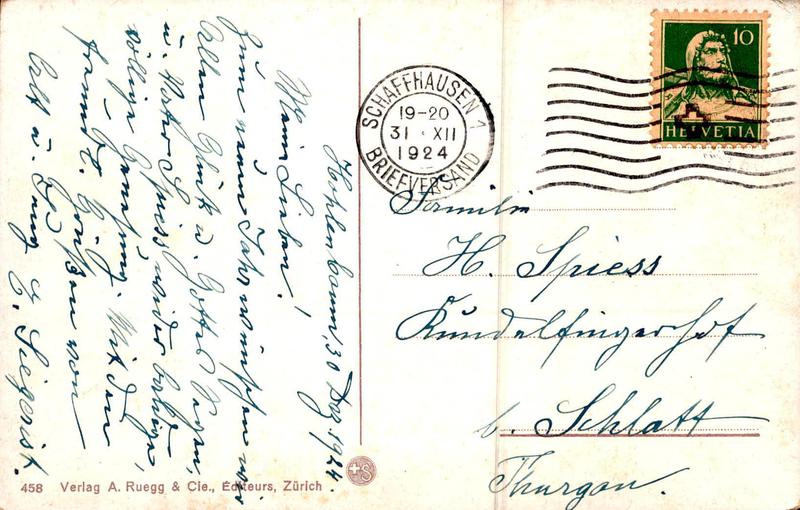 Hohlenbaum, 30 Dez. 1924.
Meine Lieben!
Zum neuen Jahr wünschen wir
Allen Glück u. Gottes Segen,
u. Vater Spiess wieder baldige,
völlige Genesung. Mit den
freundl. Grüßen von
Alt u. Jung
E. Siegerist.
SCHAFFHAUSEN 1
19-20
31 · XII
1924
BRIEFVERSAND
10
HELVETIA
Familie
H. Spiess
Kundelfingerhof
b. Schlatt
Thurgau.
458 Verlag A. Ruegg & Cie., Éditeurs, Zürich
+S